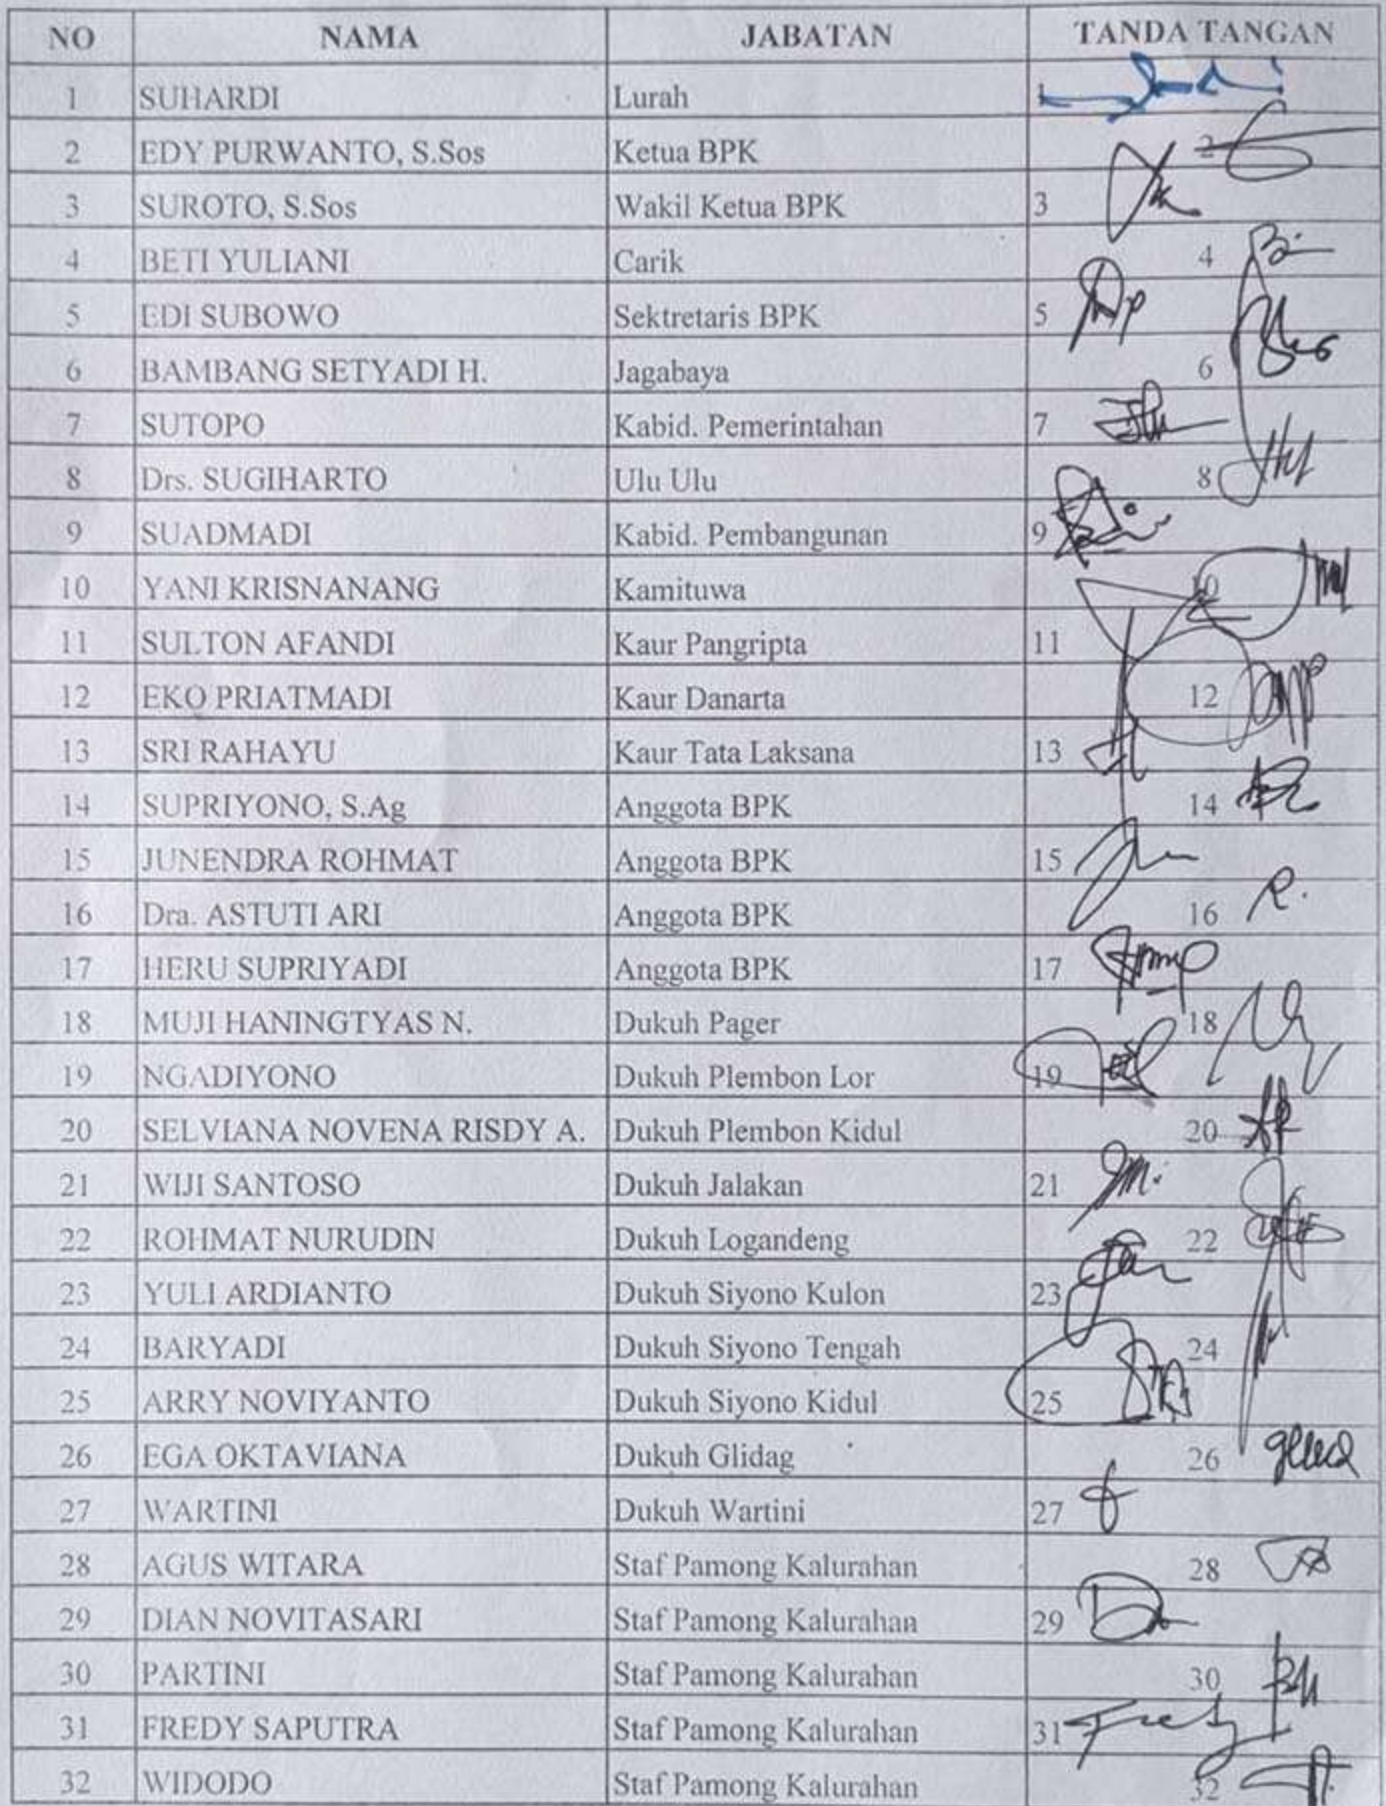 NO NAMA JABATAN TANDA TANGAN
1 SUHARDI Lurah 1
2 EDY PURWANTO, S.Sos Ketua BPK 2
3 SUROTO, S.Sos Wakil Ketua BPK 3
4 BETI YULIANI Carik 4
5 EDI SUBOWO Sektretaris BPK 5
6 BAMBANG SETYADI H. Jagabaya 6
7 SUTOPO Kabid. Pemerintahan 7
8 Drs. SUGIHARTO Ulu Ulu 8
9 SUADMADI Kabid. Pembangunan 9
10 YANI KRISNANANG Kamituwa 10
11 SULTON AFANDI Kaur Pangripta 11
12 EKO PRIATMADI Kaur Danarta 12
13 SRI RAHAYU Kaur Tata Laksana 13
14 SUPRIYONO, S.Ag Anggota BPK 14
15 JUNENDRA ROHMAT Anggota BPK 15
16 Dra. ASTUTI ARI Anggota BPK 16
17 HERU SUPRIYADI Anggota BPK 17
18 MUJI HANINGTYAS N. Dukuh Pager 18
19 NGADIYONO Dukuh Plembon Lor 19
20 SELVIANA NOVENA RISDY A. Dukuh Plembon Kidul 20
21 WIJI SANTOSO Dukuh Jalakan 21
22 ROHMAT NURUDIN Dukuh Logandeng 22
23 YULI ARDIANTO Dukuh Siyono Kulon 23
24 BARYADI Dukuh Siyono Tengah 24
25 ARRY NOVIYANTO Dukuh Siyono Kidul 25
26 EGA OKTAVIANA Dukuh Glidag 26
27 WARTINI Dukuh Wartini 27
28 AGUS WITARA Staf Pamong Kalurahan 28
29 DIAN NOVITASARI Staf Pamong Kalurahan 29
30 PARTINI Staf Pamong Kalurahan 30
31 FREDY SAPUTRA Staf Pamong Kalurahan 31
32 WIDODO Staf Pamong Kalurahan 32